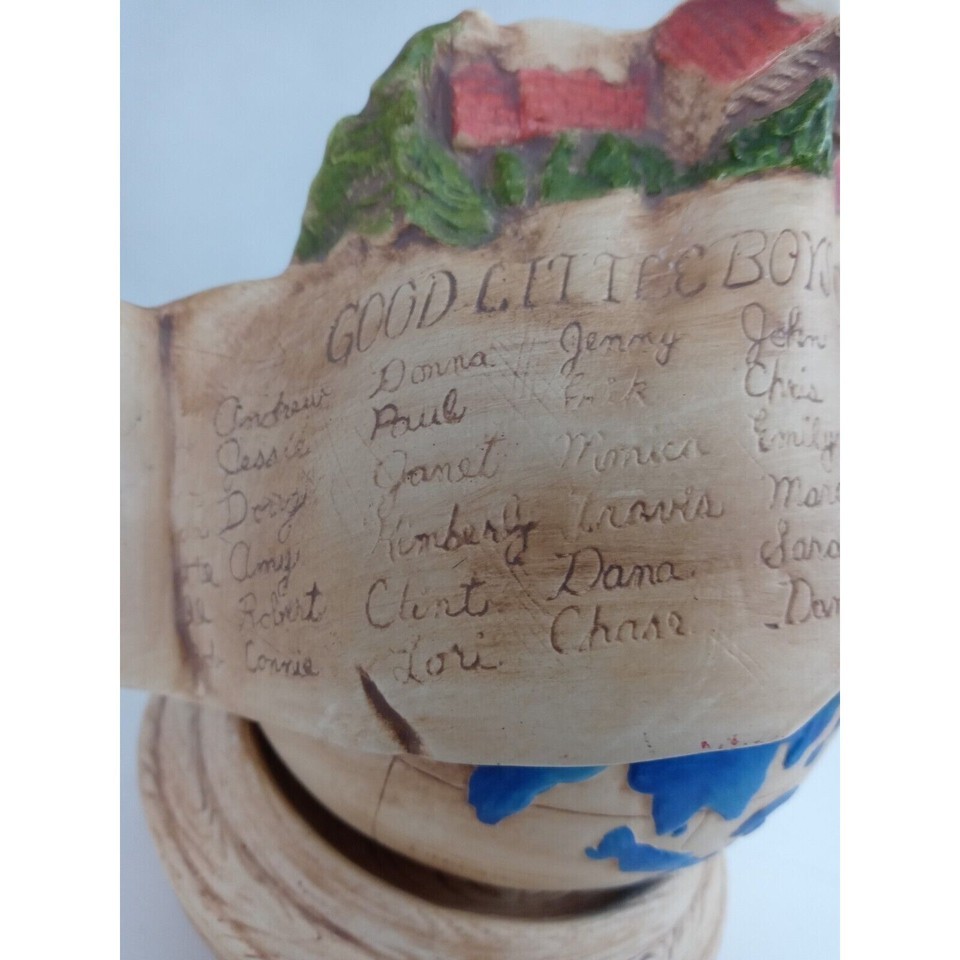 GOOD LITTLE BOYS
Andrew Donna Jenny John
Jessie Paul Erik Chris
Dory Janet Monica Emily
Amy Kimberly Travis
Robert Clint Dana
Connie Lori Chase